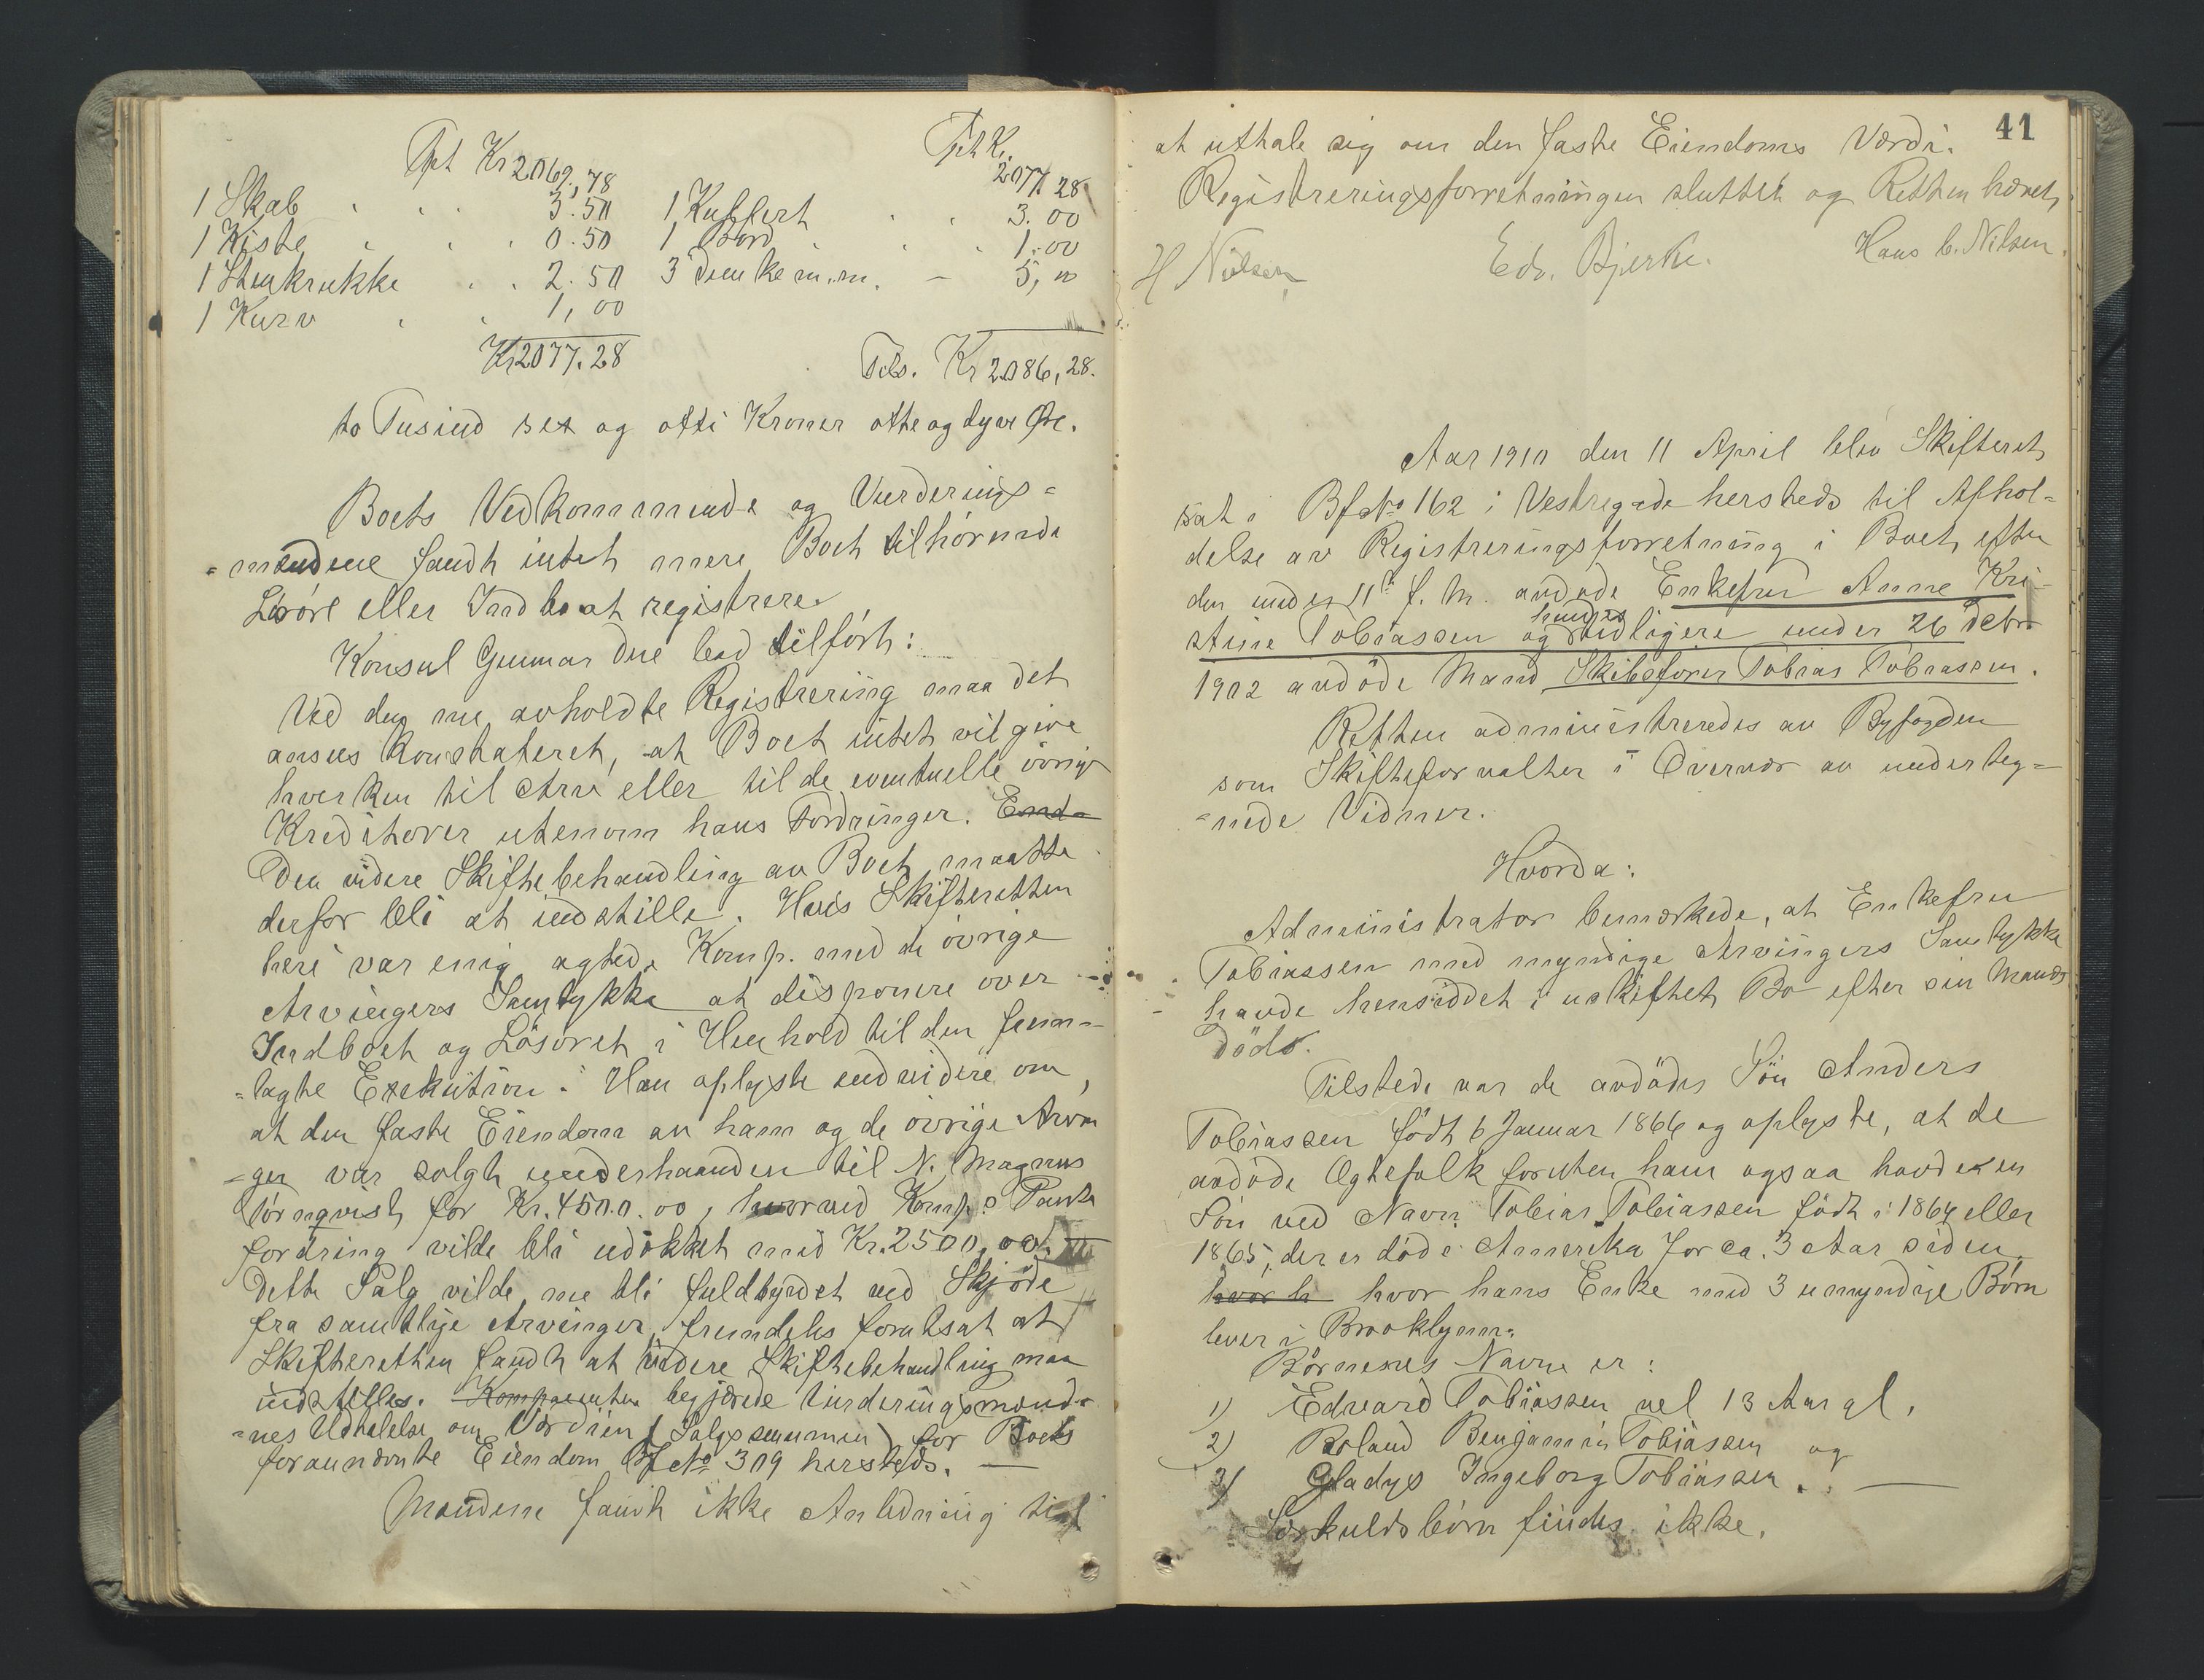 Tpt Kr 2069,78
1 Skab 3.50
1 Kiste 0.50
1 Stenkrukke 2.50
1 Kurv 1,00
Kr 2077.28
Tpt Kr. 2077.28
1 Kuffert 3.00
1 Bord 1.00
3 m.m. – 5,00
Tils. Kr 2086,28.
to Tusind sex og otti Kroner otte og tyve Øre.
Boets Vedkommende og Vurderings=
=mændene fandt intet mere Boet tilhørende
Løsøre eller Indbo at registrere.
Konsul Gunnar Due lod tilført:
Ved den nu avholdte Registrering maa det
ansees konstateret, at Boet intet vil give
hverken til Arv eller til de eventuelle øvrige
Kreditorer utenom hans Fordringer. End-
Den videre Skiftebehandling av Boet maatte
derfor bli at indstille. Hvis Skifteretten
heri var enig agtede Komp. med de øvrige
Arvingers Samtykke at disponere over
Indboet og Løsøret i Henhold til den frem-
=lagte Exekution. Han oplyste endvidere om,
at den faste Eiendom av ham og de øvrige Arvin
=ger var solgt underhaanden til N. Magnus
Törnqvist for Kr. 4500.00, hvorved Komp.s Pante
fordring vilde bli udækket med Kr. 2500,00.
Dette Salg vilde nu bli fuldbyrdet ved Skjøde
fra samtlige Arvinger, fremdeles forutsat at
Skifteretten fandt at videre Skiftebehandling maa
indstilles. Komparenten begjærede Vurderingsmænde
=nes Udtalelse om Værdien (Salgssummen) for Boets
forannævnte Eiendom Bf No 309 hersteds. —
Mændene fandt ikke Anledning til
41
at uttale sig om den faste Eiendoms Værdi.
Registreringsforretningen sluttet og Retten hævet,
H Nielsen Edv. Bjerke. Hans C. Nilsen.
Aar 1910 den 11 April blev Skifteret
sat i Bf No 162 i Vestregade hersteds til Afhol=
delse av Registreringsforretning i Boet efter
den under 11te f. M. avdøde Enkefru Anne Kri-
hendes
stine Tobiassen og tidligere under 26 Debr
1902 avdøde Mand Skibsfører Tobias Tobiassen.
Retten administreredes av Byfogden
som Skifteforvalter i Overvær av underteg=
=nede Vidner.
Hvorda:
Administrator bemærkede, at Enkefru
Tobiassen med myndige Arvingers Samtykke
havde hensiddet i uskiftet Bo efter sin Mands
Død.
Tilstede var de avdødes Søn Anders
Tobiassen født 6 Januar 1866 og oplyste, at de
avdøde Egtefolk foruten ham ogsaa havde en
Søn ved Navn Tobias Tobiassen født i 1864 eller
1865, der er død i Amerika for ca. 3 Aar siden,
hvor h hvor hans Enke med 3 umyndige Børn
lever i Brooklynn.
Børnenes Navne er:
1) Edvard Tobiassen vel 13 Aar gl.
2) Roland Benjamin Tobiassen og
3) Gladys Ingeborg Tobiassen. —
Særkuldsbørn findes ikke.